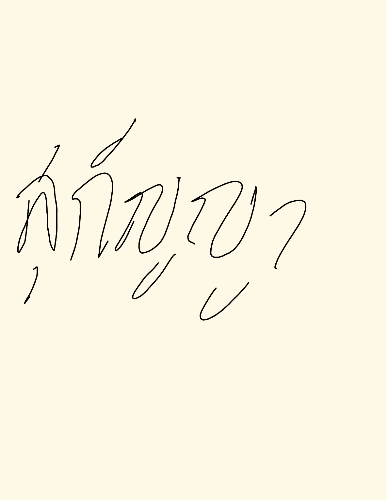 สุกัญญา